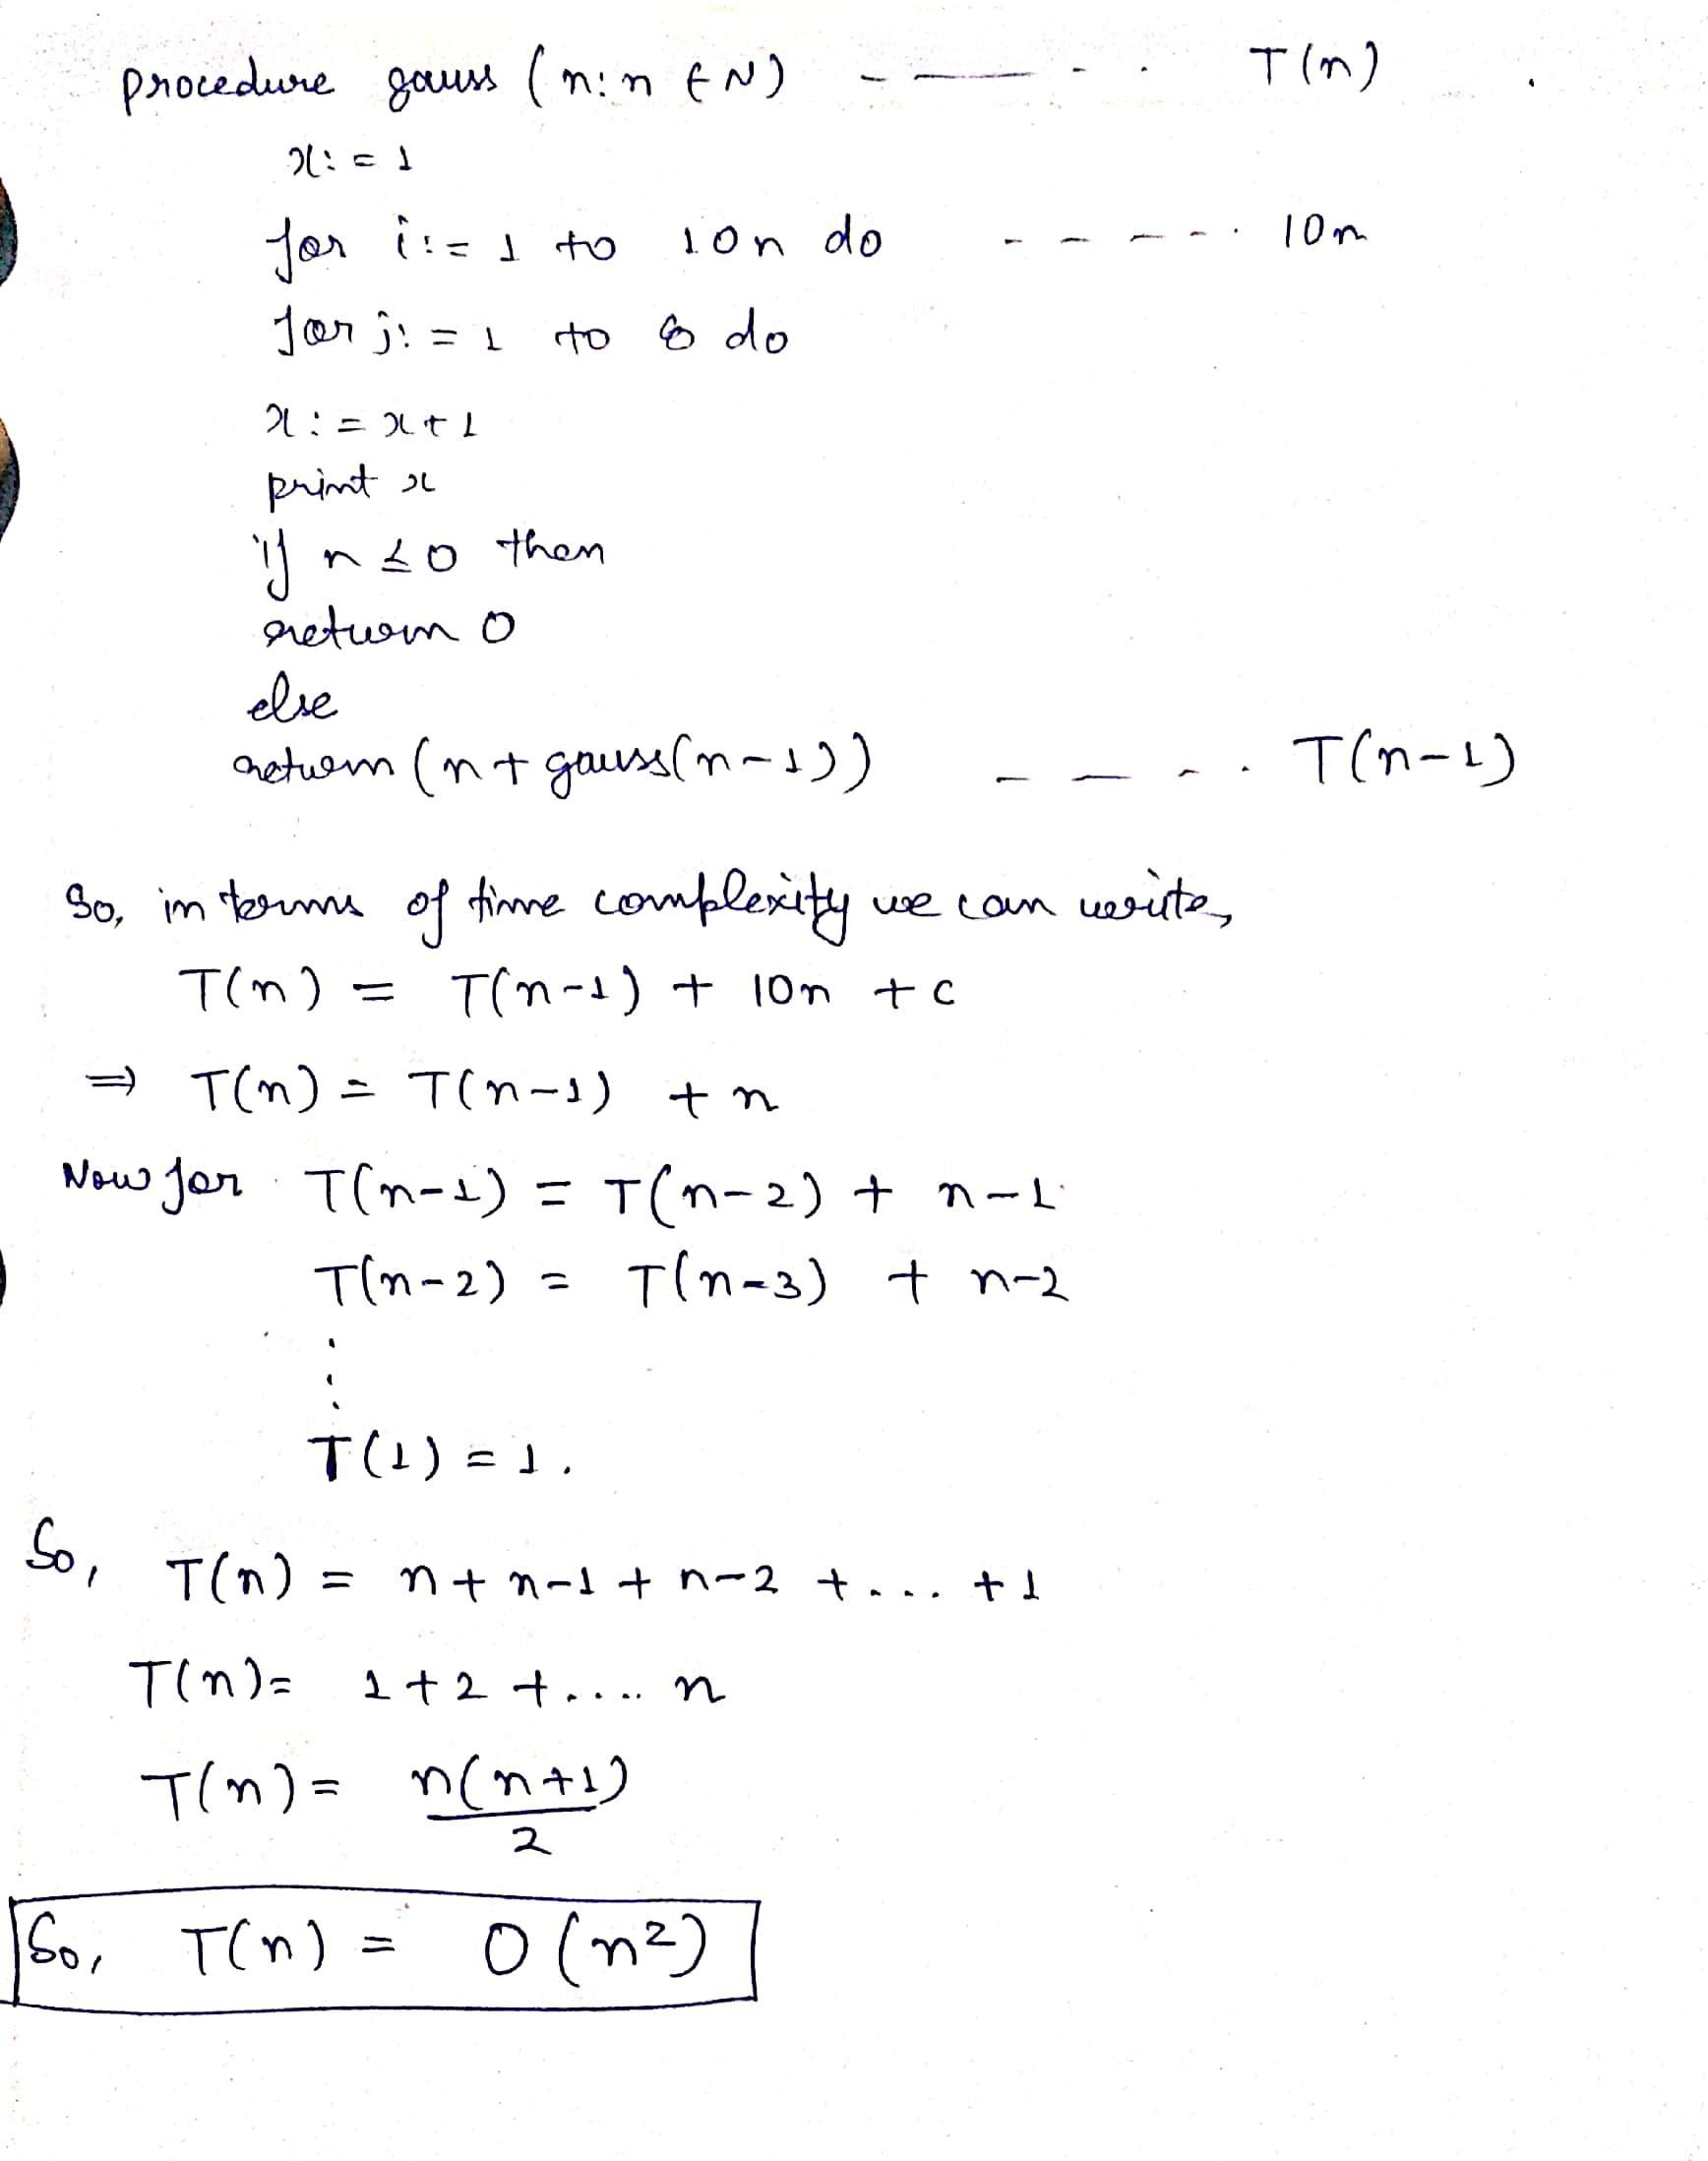 procedure gauss (n:n ∈ N) - — - . T(n)
x:=1
for i:=1 to 10n do - - - - . 10n
for j:=1 to 8 do
x:=x+1
print x
if n≤0 then
return 0
else
return (n+gauss(n-1)) - - - . T(n-1)
So, in terms of time complexity we can write,
T(n) = T(n-1) + 10n + c
⇒ T(n) = T(n-1) + n
Now for T(n-1) = T(n-2) + n-1
T(n-2) = T(n-3) + n-2
⋮
T(1) = 1.
So, T(n) = n+n-1+n-2 +... +1
T(n)= 1+2+..... n
T(n)= n(n+1)/2
So, T(n) = O(n²)